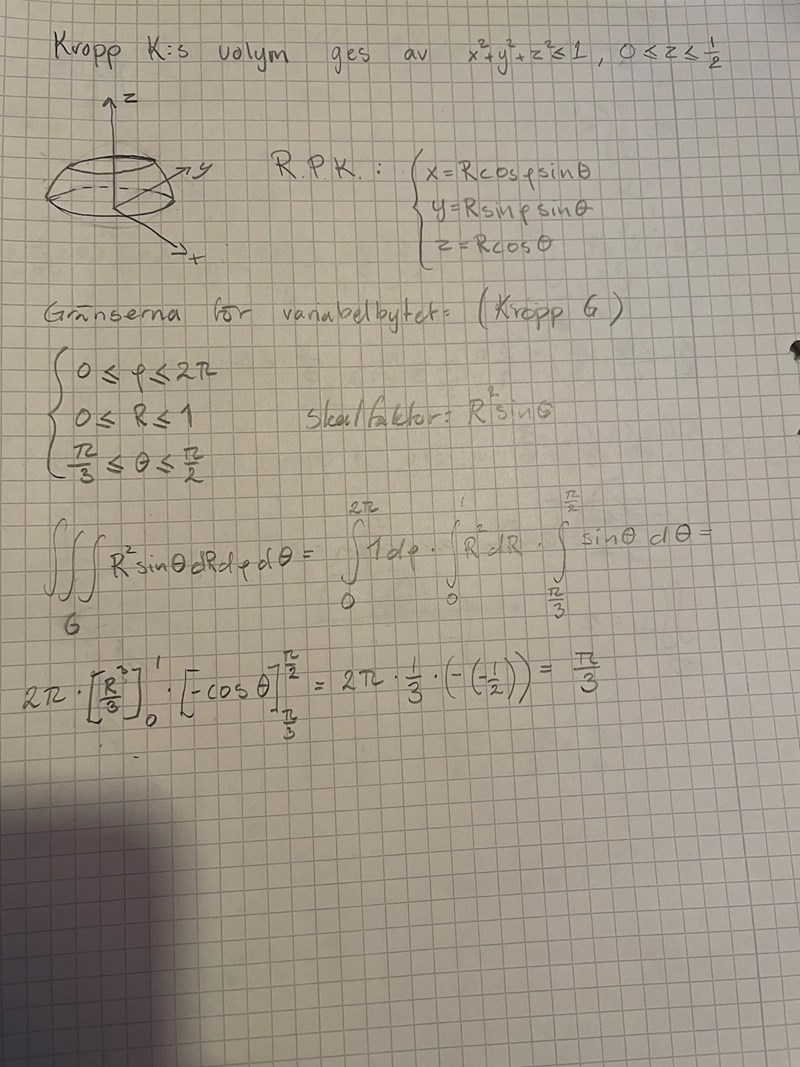 Kropp K:s volym ges av x²+y²+z²≤1, 0≤z≤1/2
z
y
x
R.P.K.: { x=Rcosφsinθ
y=Rsinφsinθ
z=Rcosθ
Gränserna för variabelbytet: (Kropp G)
{ 0≤φ≤2π
0≤R≤1
π/3≤θ≤π/2
Skalfaktor: R²sinθ
∭_G R²sinθdRdφdθ = ∫_0^{2π} 1dφ · ∫_0^1 R²dR · ∫_{π/3}^{π/2} sinθ dθ =
2π · [R³/3]_0^1 · [-cosθ]_{π/3}^{π/2} = 2π · 1/3 · (-(-1/2)) = π/3